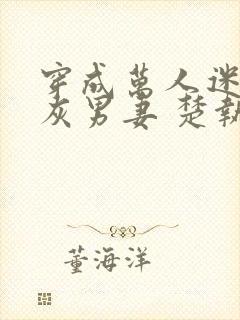 穿成萬人迷
灰男妻 楚執
董海洋